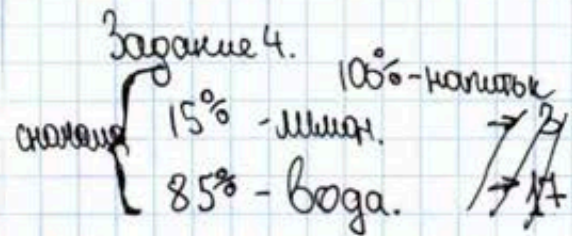 Задание 4.
100%-напиток
сначала
15% - лимон. → 3
85% - вода. → 17